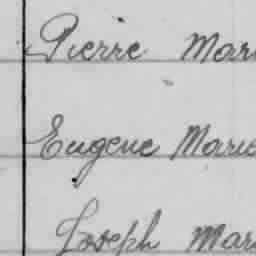 Pierre Mari
Eugene Marie
Joseph Mar